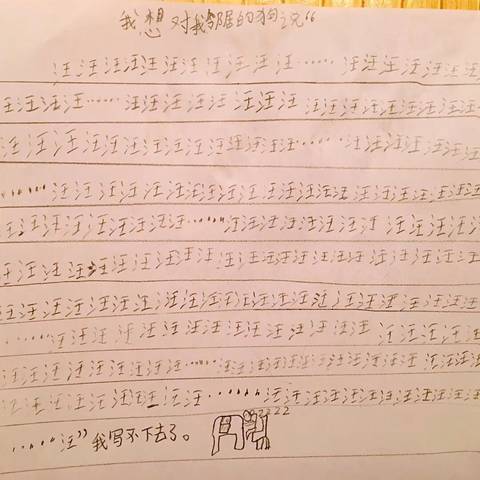 我想对我邻居的狗说“
汪汪汪汪汪汪汪汪汪汪……汪汪汪汪汪汪
汪汪汪汪……汪汪汪汪汪汪汪汪汪汪汪汪汪汪汪
汪汪汪汪汪汪汪汪汪汪汪汪……汪汪汪汪汪汪
……汪汪汪汪汪汪汪汪汪汪汪汪汪汪汪汪汪汪汪
汪汪汪汪汪汪汪汪……汪汪汪汪汪汪汪汪汪汪汪
汪汪汪汪汪汪汪汪汪汪汪汪汪汪汪汪汪汪汪汪汪
汪汪汪汪汪汪汪汪汪汪汪汪汪汪汪汪汪汪汪汪汪
……汪汪汪汪汪汪汪汪汪汪汪汪汪汪汪汪汪汪
汪汪汪汪汪汪汪汪……汪汪汪汪汪汪汪汪汪汪汪
汪汪汪汪汪汪汪汪汪……汪汪汪汪汪汪汪汪汪汪
……“汪”我写不下去了。
zzzz